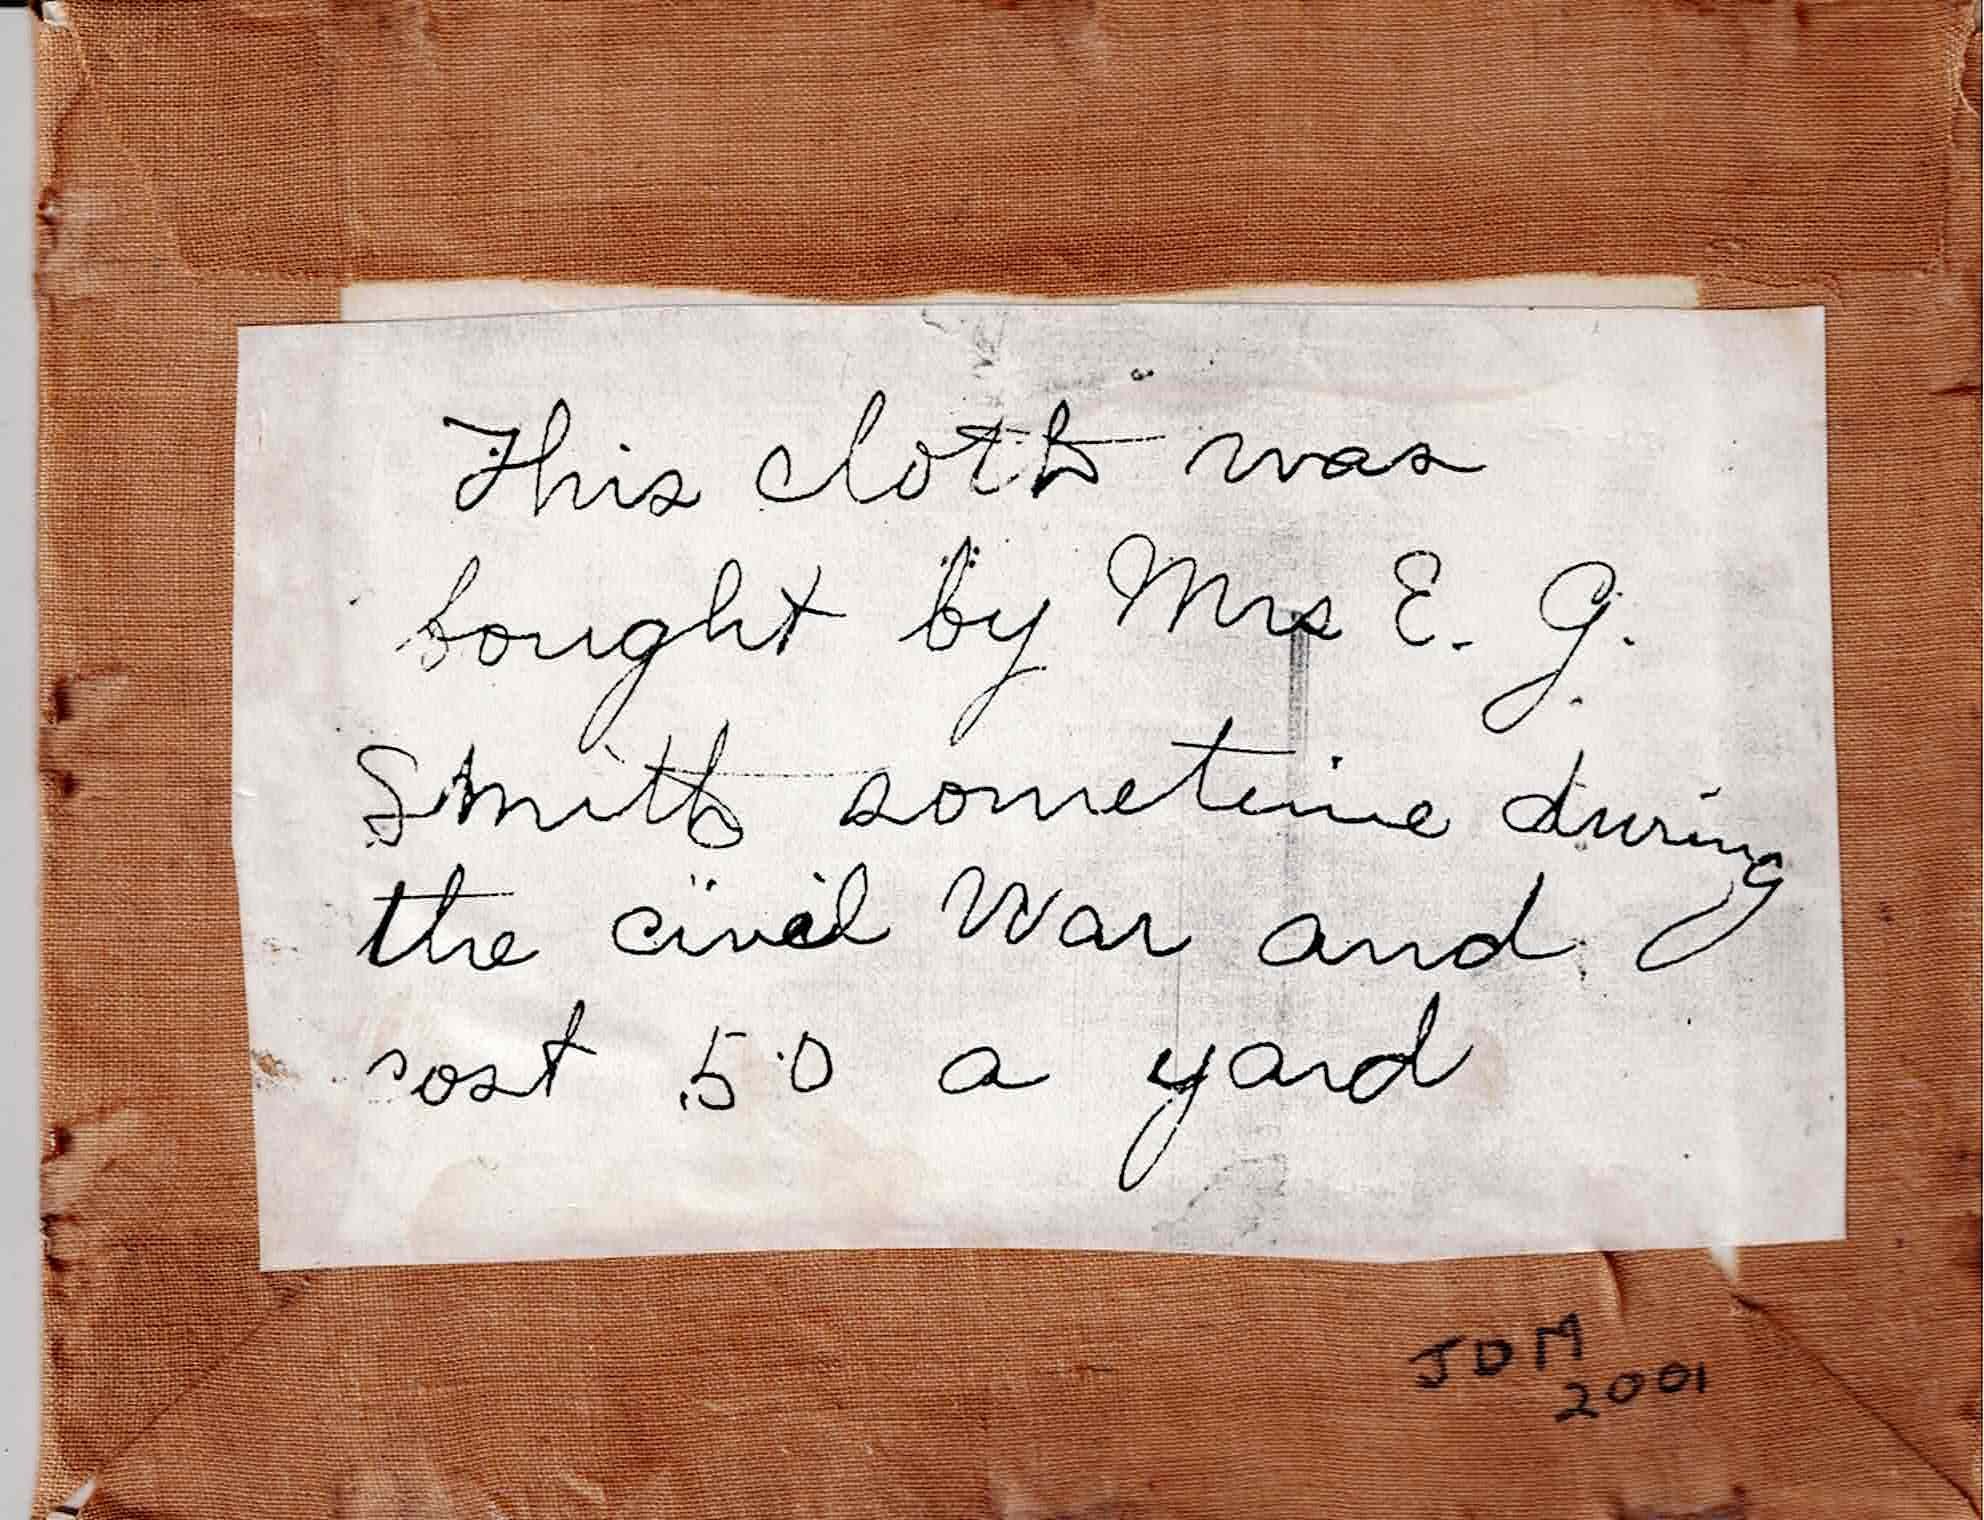 This cloth was
bought by Mrs E. G.
Smith sometime during
the civil War and
cost .50 a yard
JDM
2001